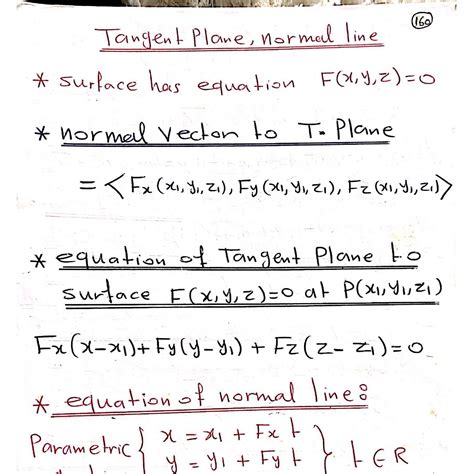 160
Tangent Plane, normal line
* surface has equation F(x,y,z)=0
* normal vector to T. Plane
= <Fx(x1,y1,z1), Fy(x1,y1,z1), Fz(x1,y1,z1)>
* equation of Tangent Plane to
surface F(x,y,z)=0 at P(x1,y1,z1)
Fx(x-x1)+Fy(y-y1)+Fz(z-z1)=0
* equation of normal line:
Parametric { x = x1 + Fx t
y = y1 + Fy t } t ∈ R